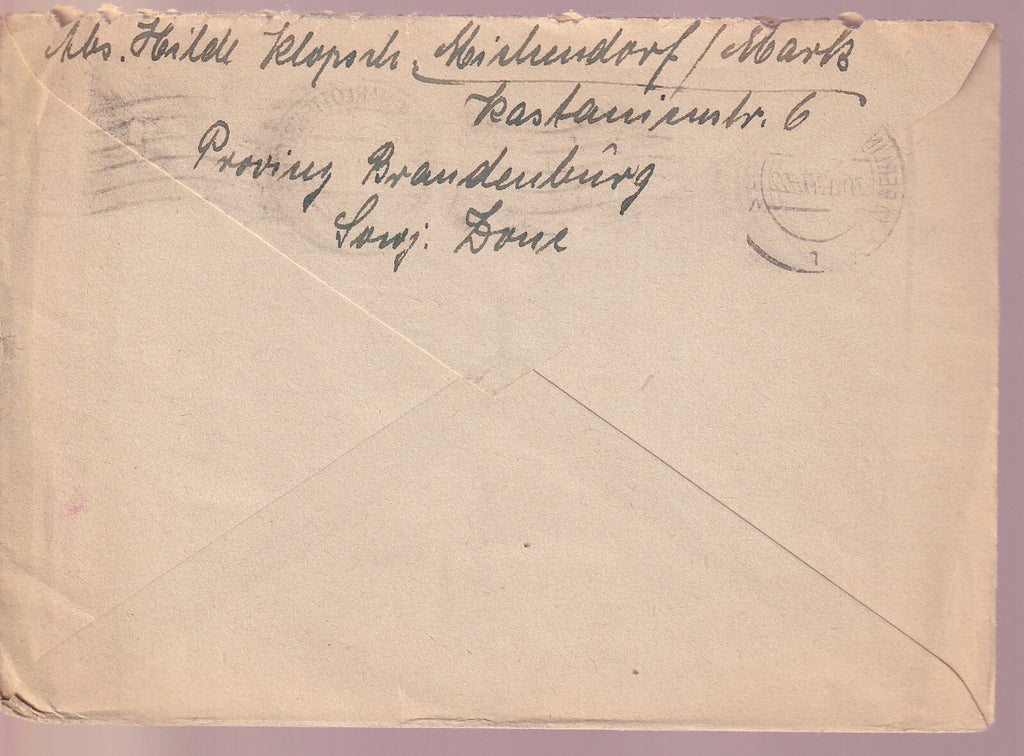 Abs. Hilde Klopsch, Michendorf / Mark
Kastanienstr. 6
Provinz Brandenburg
Sowj. Zone
BERLIN
1